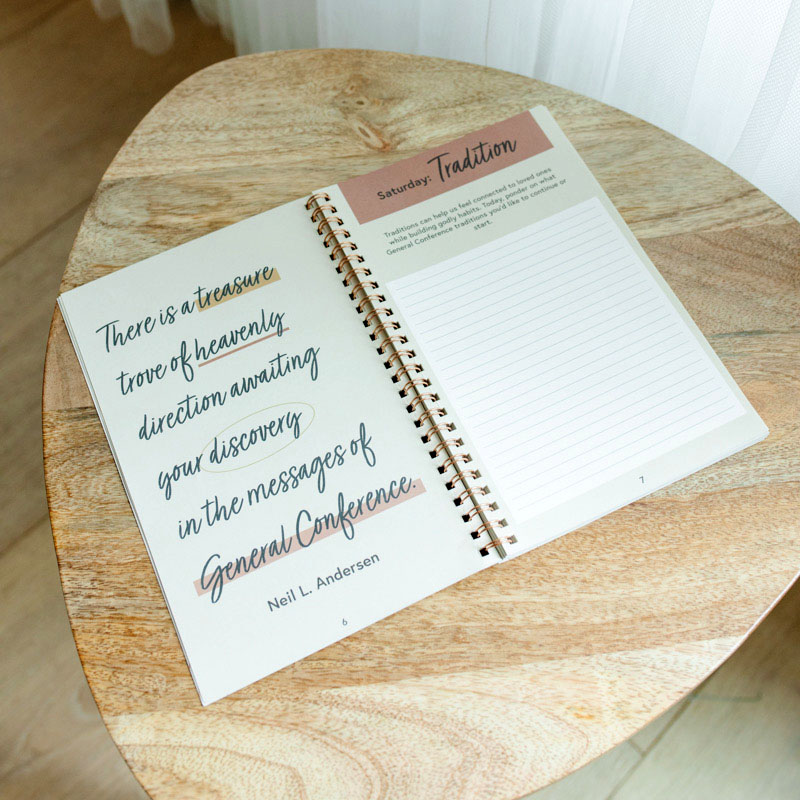 There is a treasure
trove of heavenly
direction awaiting
your discovery
in the messages of
General Conference.
Neil L. Andersen
6
Saturday: Tradition
Traditions can help us feel connected to loved ones
while building godly habits. Today, ponder on what
General Conference traditions you'd like to continue or
start.
7